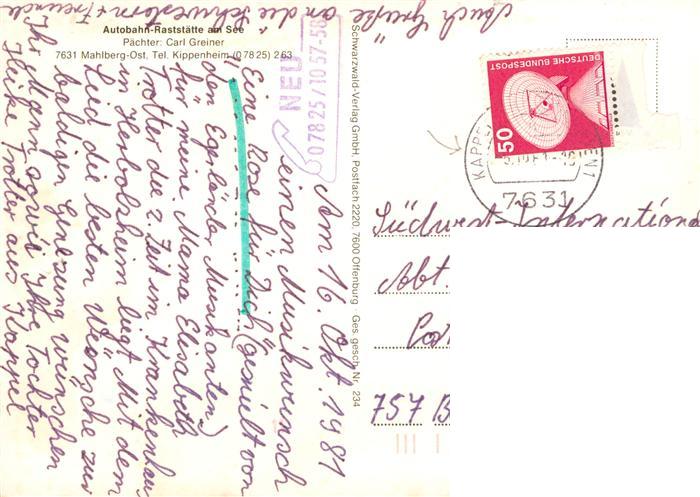 Autobahn-Raststätte am See
Pächter: Carl Greiner
7631 Mahlberg-Ost, Tel. Kippenheim (0 78 25) 2 63
NEU
07825/1057-58
Am 16. Okt. 1981
einen Musikwunsch
"Eine Rose für Dich" (gespielt von
den Egerländer Musikanten)
für meine Mama Elisabeth
Trotter die z. Zeit im Krankenhaus
in Herbolsheim liegt. Mit dem
Lied die besten Wünsche zur
baldigen Genesung wünschen
Ihr Mann sowie Ihre Tochter
Heike Trotter aus Kappel
Auch Grüße an die Schwestern + Freunde
Schwarzwald-Verlag GmbH, Postfach 2220, 7600 Offenburg · Ges. gesch. Nr. 234
DEUTSCHE BUNDESPOST
50
KAPPEL
7631
Südwest-Internationa
Abt.
757 B